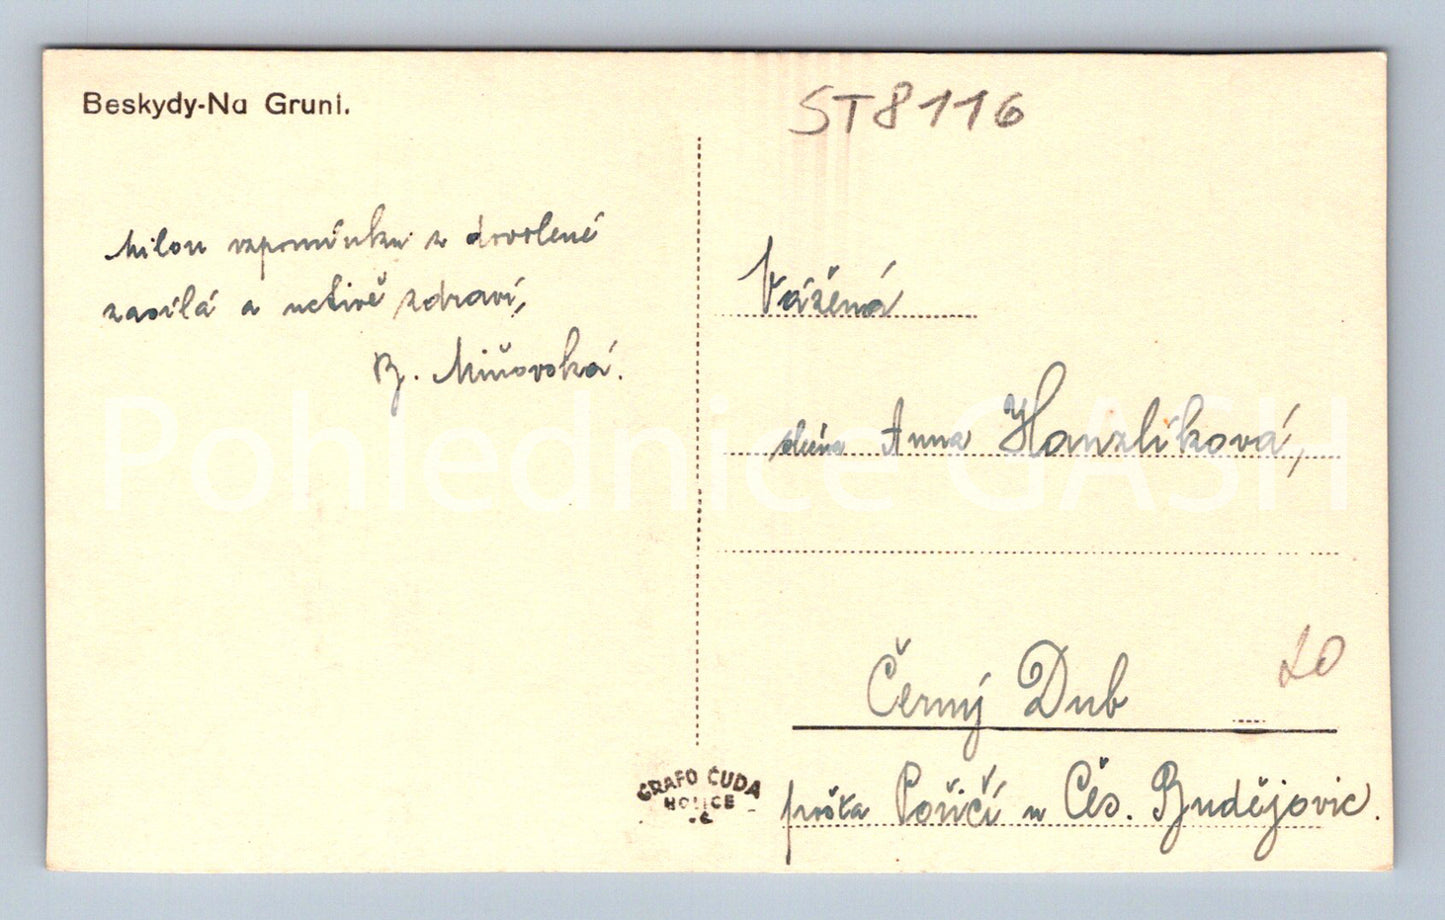 Beskydy-Na Gruni.
ST8116
Milou vzpomínku z dovolené
zasílá a uctivě zdraví,
B. Miňovská.
Vážená
slečna Anna Hanzlíková,
Pohlednice GASH
Černý Dub
20
pošta Poříčí u Čes. Budějovic.
GRAFO ČUDA
HOLICE